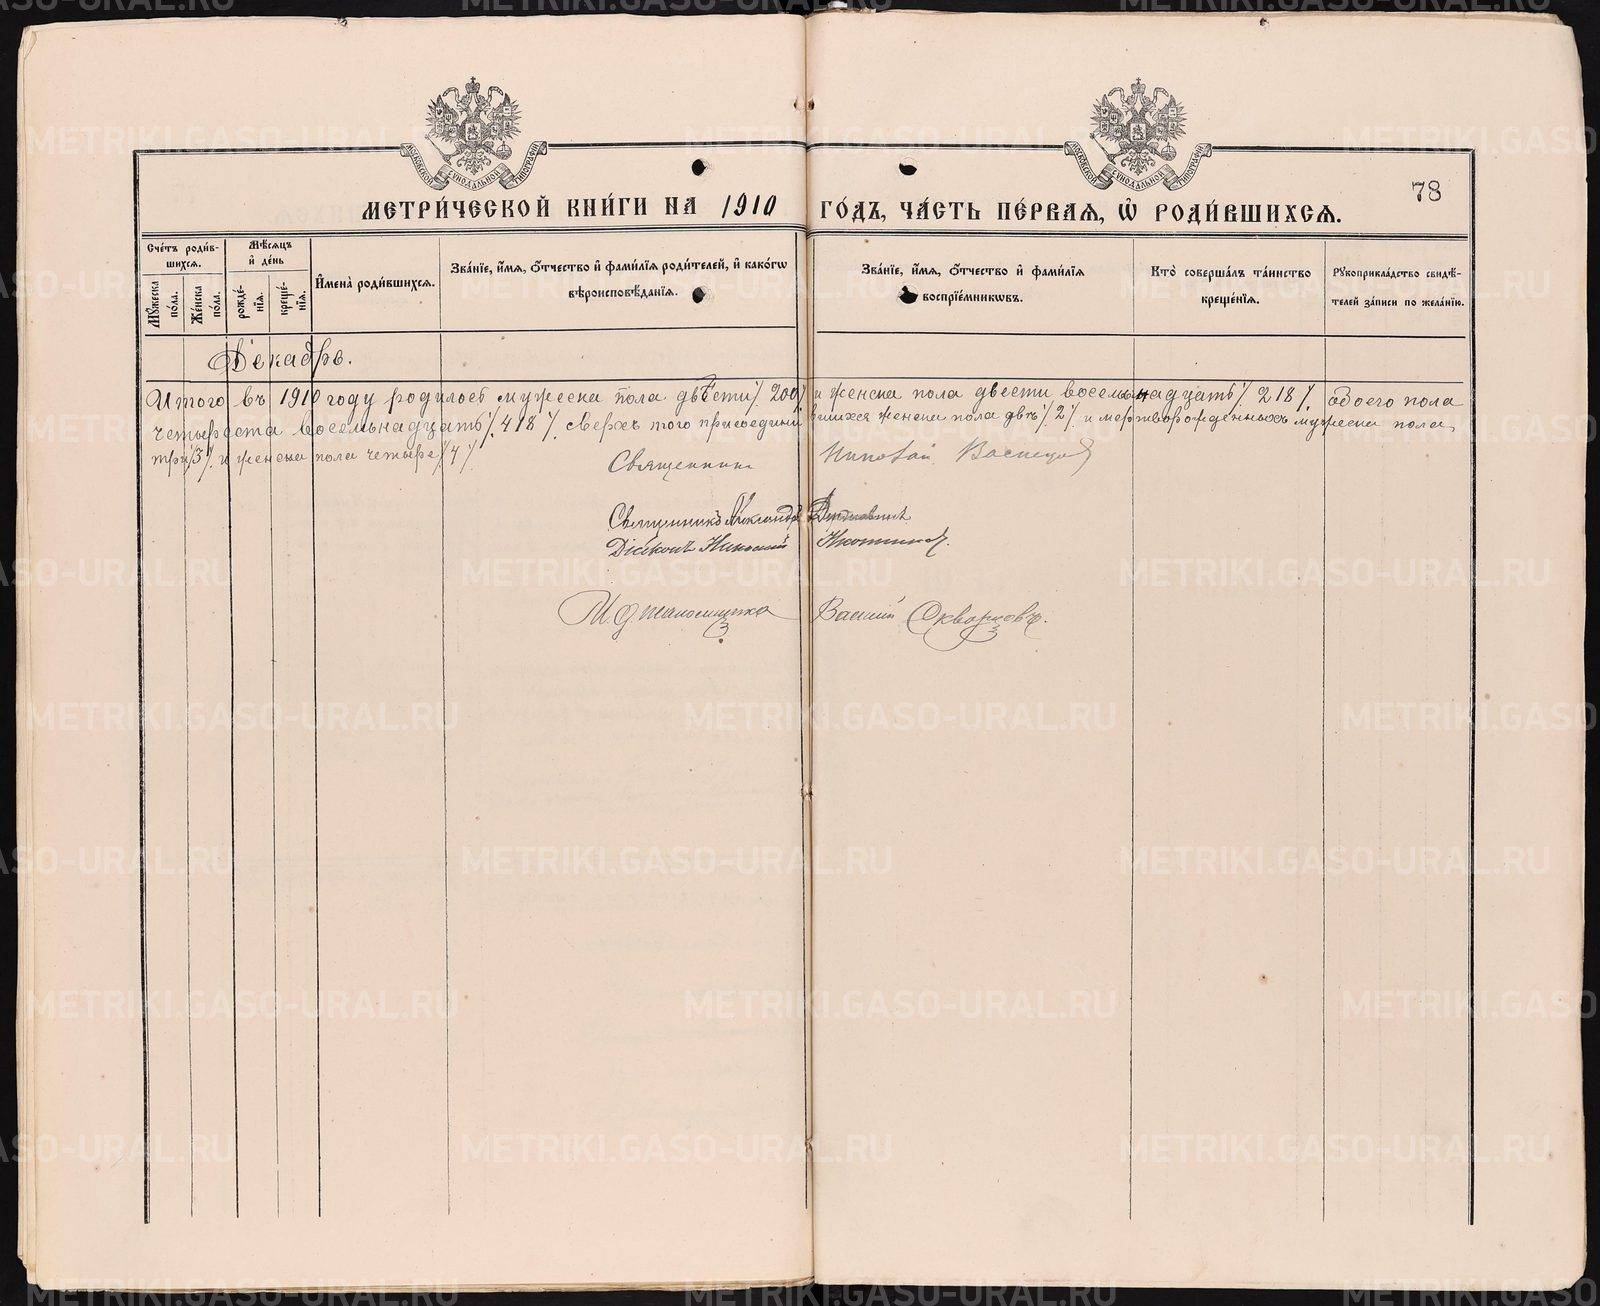 МОСКОВСКОЙ СѴНОДАЛЬНОЙ ТИПОГРАФІИ
МОСКОВСКОЙ СѴНОДАЛЬНОЙ ТИПОГРАФІИ
78
МЕТРИ́ЧЕСКОЙ КНИ́ГИ НА 1910 ГО́ДЪ, ЧА́СТЬ ПЕ́РВАѦ, Ѡ РОДИ́ВШИХСѦ.
Сче́тъ роди́в-
шихсѧ.
Мꙋ́жеска по́ла.
Же́нска по́ла.
Мѣ́сѧцъ и де́нь
рожде́-нїѧ.
креще́-нїѧ.
Имена̀ роди́вшихсѧ.
Зва́нїе, и́мѧ, ѻ́тчество и фами́лїѧ роди́телей, и како́гѡ
вѣроисповѣ́данїѧ.
Зва́нїе, и́мѧ, ѻ́тчество и фами́лїѧ
воспрїе́мникѡвъ.
Кто̀ соверша́лъ та́инство
креще́нїѧ.
Рꙋкоприкла́дство свидѣ́-
телей за́писи по жела́нїю.
Декабрь.
Итого въ 1910 году родилось мужеска пола двѣсти /200/ и женска пола двести восемьнадцать /218/. Обоего пола
четыреста восемьнадцать /.418/. сверхъ того присоединившихся женска пола двѣ /2/ и мертворожденныхъ мужеска пола
три /3/ и женска пола четыре /4/.
Священникъ Николай Васнецовъ
Священникъ Александръ
Діаконъ Николай
И. д. псаломщика Василій Скворцовъ.
METRIKI.GASO-URAL.RU